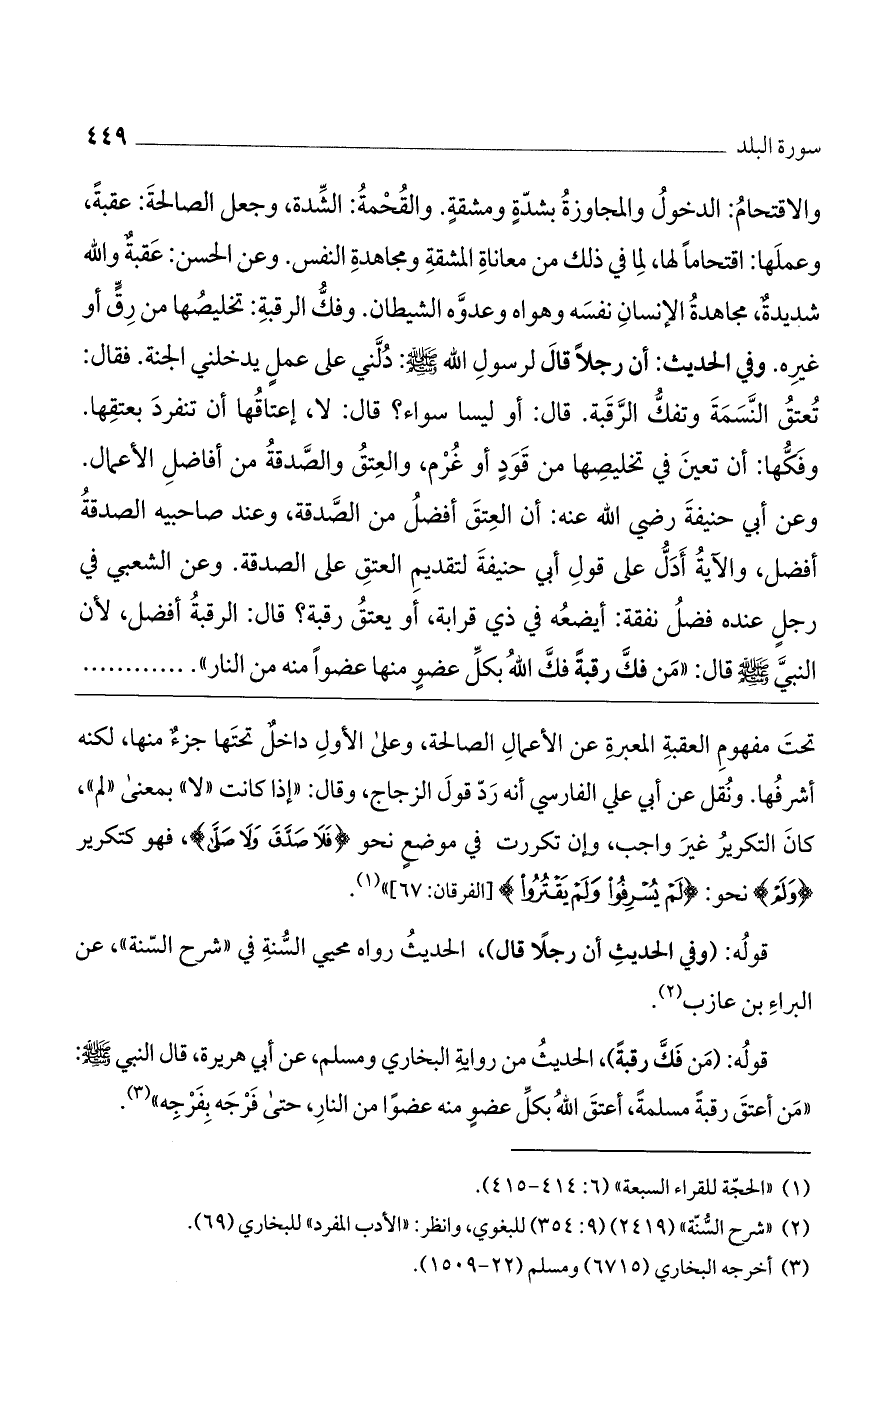 سورة البلد ٤٤٩
والاقتحامُ: الدخولُ والمجاوزةُ بشدّةٍ ومشقةٍ. والقُحْمةُ: الشِّدة، وجعل الصالحةَ: عقبةً،
وعملَها: اقتحاماً لها، لِما في ذلك من معاناةِ المشقةِ ومجاهدةِ النفس. وعن الحسن: عَقبةٌ والله
شديدةٌ، مجاهدةُ الإنسانِ نفسَه وهواه وعدوَّه الشيطان. وفكُّ الرقبةِ: تخليصُها من رِقٍّ أو
غيرِه. وفي الحديث: أن رجلاً قالَ لرسولِ الله ﷺ: دُلَّني على عملٍ يدخلني الجنة. فقال:
تُعتقُ النَّسَمَةَ وتفكُّ الرَّقبة. قال: أو ليسا سواء؟ قال: لا، إعتاقُها أن تنفردَ بعتقِها.
وفَكُّها: أن تعينَ في تخليصِها من قَوَدٍ أو غُرْم، والعِتقُ والصَّدقةُ من أفاضلِ الأعمال.
وعن أبي حنيفةَ رضي الله عنه: أن العِتقَ أفضلُ من الصَّدقة، وعند صاحبيه الصدقةُ
أفضل، والآيةُ أَدَلُّ على قولِ أبي حنيفةَ لتقديمِ العتقِ على الصدقة. وعن الشعبي في
رجلٍ عنده فضلُ نفقة: أيضعُه في ذي قرابة، أو يعتقُ رقبة؟ قال: الرقبةُ أفضل، لأن
النبيَّ ﷺ قال: «مَن فكَّ رقبةً فكَّ اللهُ بكلِّ عضوٍ منها عضواً منه من النار». ............
تحتَ مفهومِ العقبةِ المعبرةِ عن الأعمالِ الصالحة، وعلىٰ الأولِ داخلٌ تحتَها جزءٌ منها، لكنه
أشرفُها. ونُقل عن أبي علي الفارسي أنه رَدّ قولَ الزجاج، وقال: «إذا كانت «لا» بمعنىٰ «لم»،
كانَ التكريرُ غيرَ واجب، وإن تكررت في موضعٍ نحو ﴿فَلَا صَدَّقَ وَلَا صَلَّىٰ﴾، فهو كتكرير
﴿وَلَمْ﴾ نحو: ﴿لَمْ يُسْرِفُوا۟ وَلَمْ يَقْتُرُوا۟﴾ [الفرقان: ٦٧]»(١).
قولُه: (وفي الحديثِ أن رجلًا قال)، الحديثُ رواه محيي السُّنةِ في «شرح السّنة»، عن
البراءِ بن عازب(٢).
قولُه: (مَن فَكَّ رقبةً)، الحديثُ من روايةِ البخاري ومسلم، عن أبي هريرة، قال النبي ﷺ:
«مَن أعتقَ رقبةً مسلمةً، أعتقَ اللهُ بكلِّ عضوٍ منه عضوًا من النارِ، حتىٰ فَرْجَه بِفَرْجِه»(٣).
(١) «الحجّة للقراء السبعة» (٦: ٤١٤-٤١٥).
(٢) «شرح السُّنّة» (٢٤١٩) (٩: ٣٥٤) للبغوي، وانظر: «الأدب المفرد» للبخاري (٦٩).
(٣) أخرجه البخاري (٦٧١٥) ومسلم (٢٢-١٥٠٩).